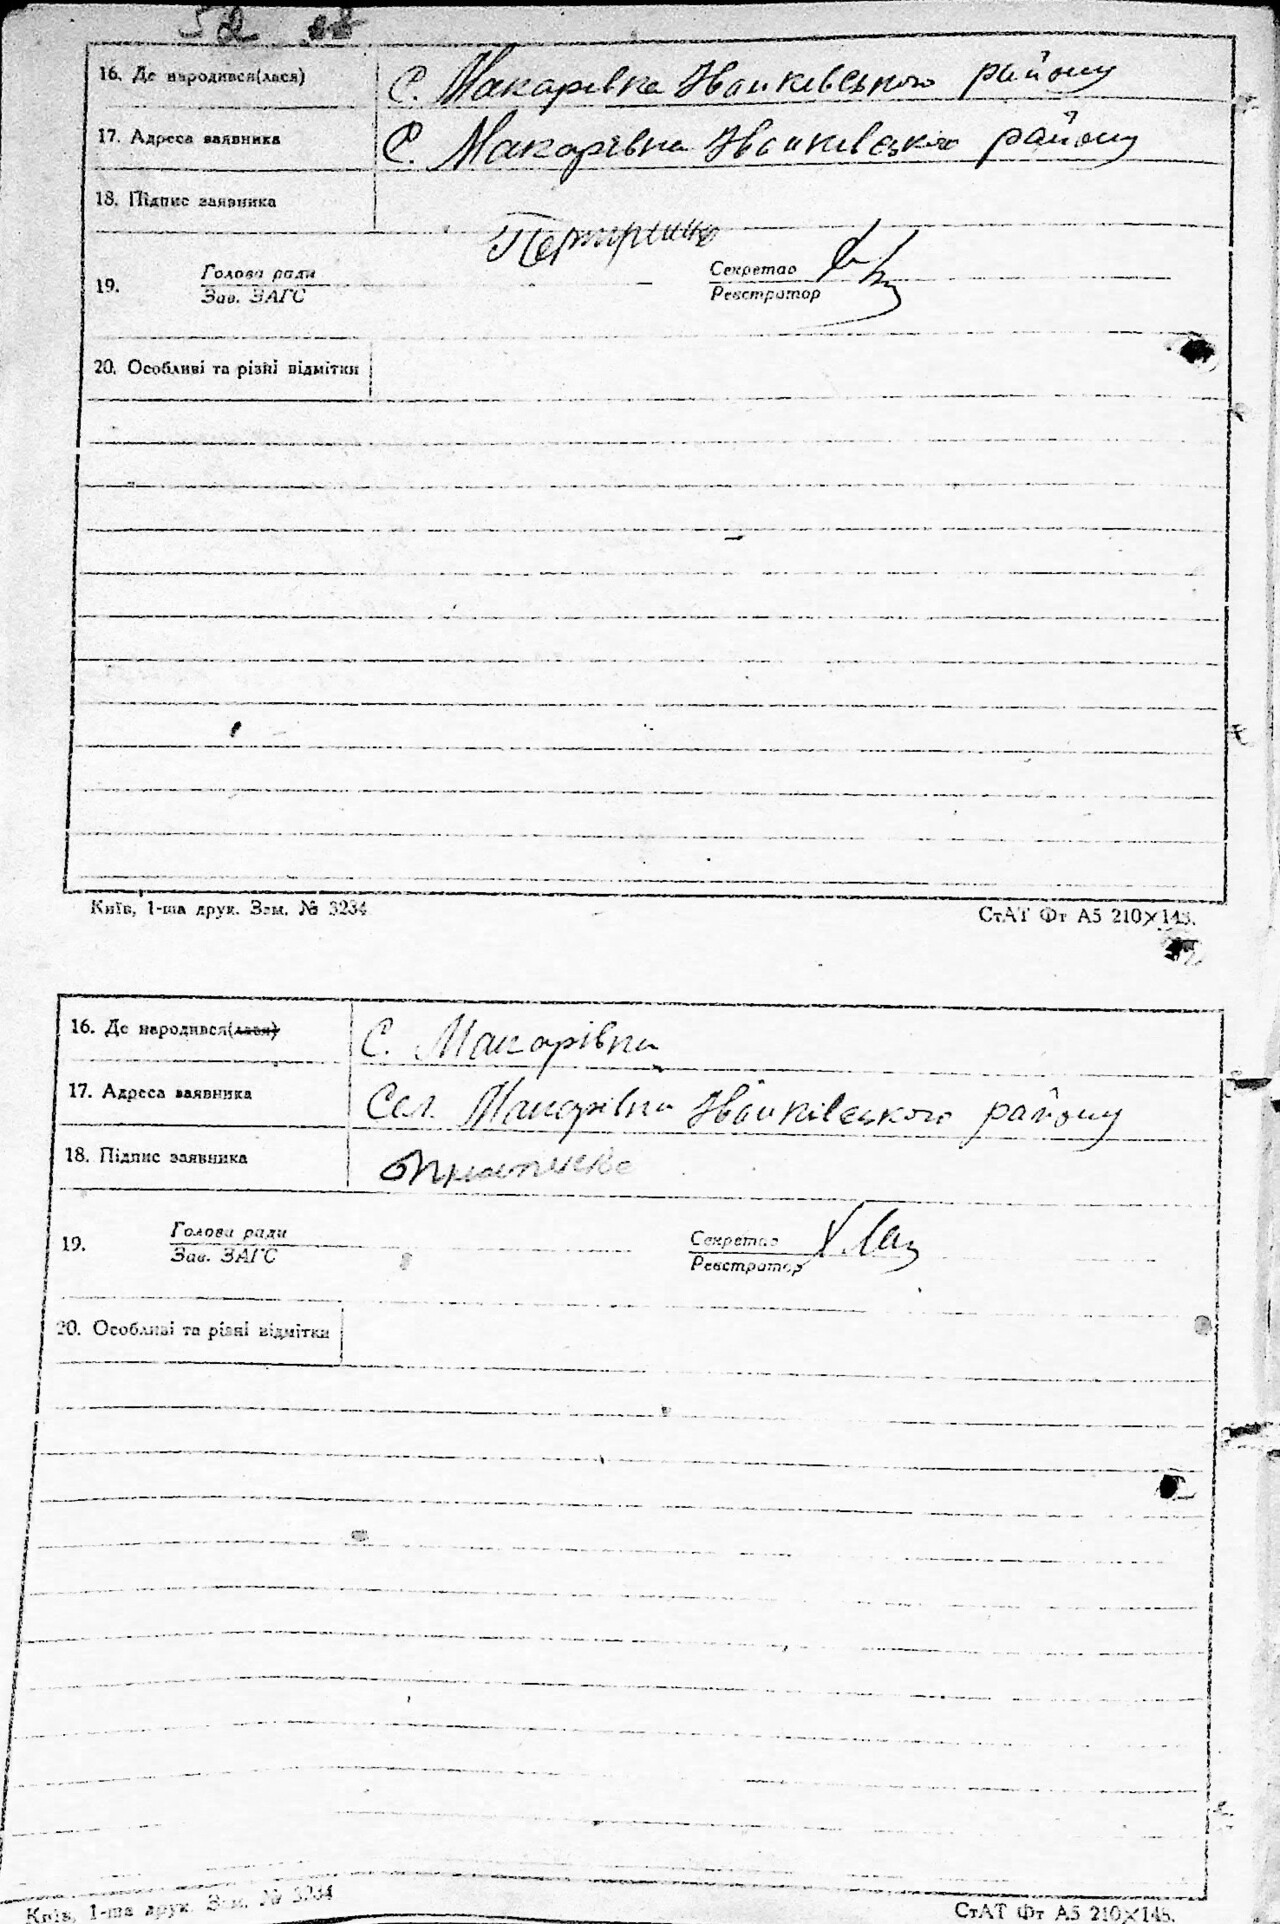 52
16. Де народився(лася) С. Макарівка Іванківського району
17. Адреса заявника С. Макарівка Іванківського району
18. Підпис заявника
19. Голова ради Секретар
Зав. ЗАГС Реєстратор
20. Особливі та різні відмітки
Київ, 1-ша друк. Зам. № 3234 СтАТ Фт А5 210×148.
16. Де народився(лася) С. Макарівка
17. Адреса заявника Сел. Макарівка Іванківського району
18. Підпис заявника
19. Голова ради Секретар
Зав. ЗАГС Реєстратор
20. Особливі та різні відмітки
Київ, 1-ша друк. Зам. № 3234 СтАТ Фт А5 210×148.